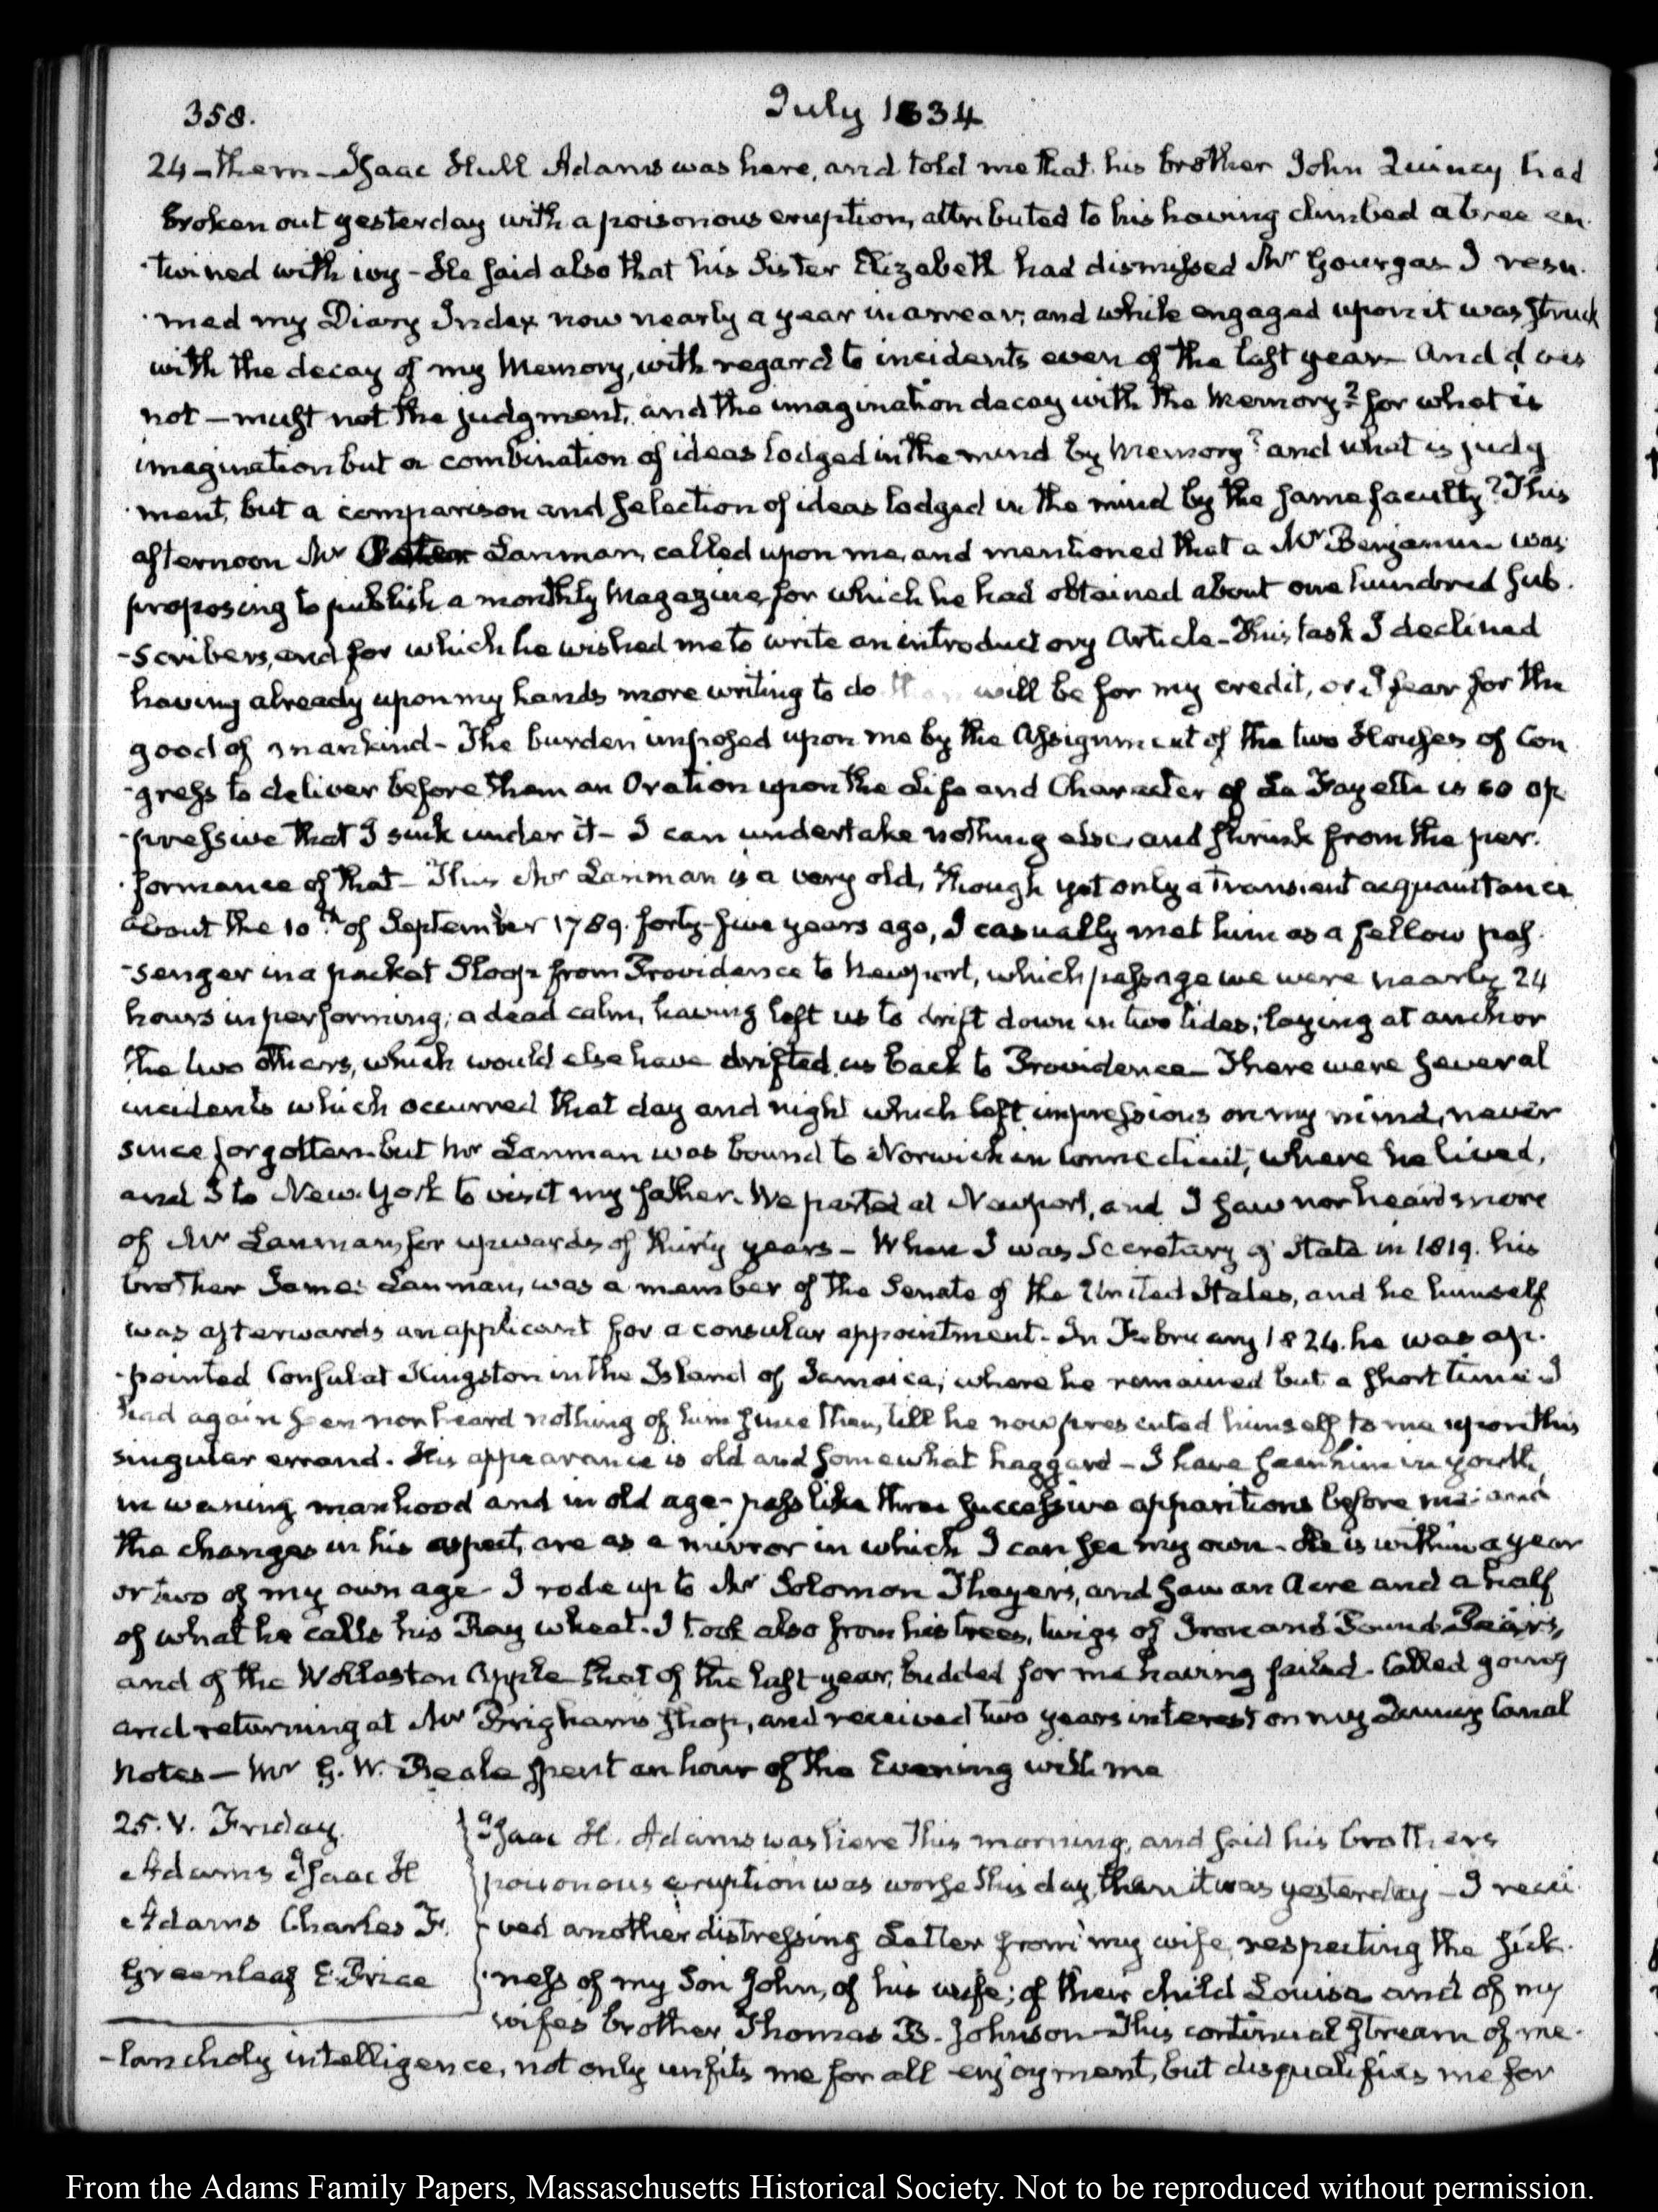 358.
July 1834
24 - them - Isaac Hull Adams was here, and told me that his brother John Quincy had
broken out yesterday with a poisonous eruption, attributed to his having climbed a tree en-
-twined with ivy - He said also that his Sister Elizabeth had dismissed Mr Gourgas I resu-
-med my Diary Index now nearly a year in arrear; and while engaged upon it was struck
with the decay of my Memory, with regard to incidents even of the last year - And does
not - must not the judgment, and the imagination decay with the Memory? for what is
imagination but a combination of ideas lodged in the mind by Memory? and what is judg
-ment, but a comparison and selection of ideas lodged in the mind by the same faculty? This
afternoon Mr Lanman, called upon me, and mentioned that a Mr Benjamin was
proposing to publish a monthly Magazine, for which he had obtained about one hundred sub-
-scribers, and for which he wished me to write an introductory Article - This task I declined
having already upon my hands more writing to do than will be for my credit, or I fear for the
good of mankind - The burden imposed upon me by the Assignment of the two Houses of Con
-gress to deliver before them an Oration upon the Life and Character of La Fayette is so op
-pressive that I sink under it - I can undertake nothing else, and shrink from the per-
-formance of that - This Mr Lanman is a very old, though yet only a transient acquaintance
about the 10th of September 1789. forty-five years ago, I casually met him as a fellow pas-
-senger in a packet Sloop from Providence to Newport, which passage we were nearly 24
hours in performing; a dead calm, having left us to drift down in two tides; laying at anchor
the two others, which would else have drifted us back to Providence - There were several
incidents which occurred that day and night which left impressions on my mind, never
since forgotten - but Mr Lanman was bound to Norwich in Connecticut, where he lived,
and I to New-York to visit my father. We parted at Newport, and I saw nor heard more
of Mr Lanman, for upwards of thirty years - When I was Secretary of State in 1819. his
brother James Lanman, was a member of the Senate of the United States, and he himself
was afterwards an applicant for a consular appointment - In February 1824. he was ap-
-pointed Consul at Kingston in the Island of Jamaica; where he remained but a short time I
had again seen nor heard nothing of him since then, till he now presented himself to me upon this
singular errand. His appearance is old and somewhat haggard - I have seen him in youth,
in waning manhood and in old age - pass like three successive apparitions before me: and
the changes in his aspect, are as a mirror in which I can see my own - He is within a year
or two of my own age - I rode up to Mr Solomon Thayer's, and saw an Acre and a half
of what he calls his Ray wheat. I took also from his trees, twigs of Iron and Pound Pears,
and of the Wollaston Apple that of the last year, budded for me having failed. Called going
and returning at Mr Brigham's shop, and received two years interest on my Quincy Canal
Notes - Mr G. W. Beale spent an hour of the Evening with me
25. V. Friday.
Adams Isaac H
Adams Charles F.
Greenleaf E. Price
Isaac H. Adams was here this morning, and said his brothers
poisonous eruption was worse this day, than it was yesterday - I recei-
-ved another distressing Letter from my wife, respecting the sick-
-ness of my Son John, of his wife; of their child Louisa and of my
wife's brother Thomas B. Johnson - This continual stream of me-
-lancholy intelligence, not only unfits me for all enjoyment, but disqualifies me for
From the Adams Family Papers, Massachusetts Historical Society. Not to be reproduced without permission.